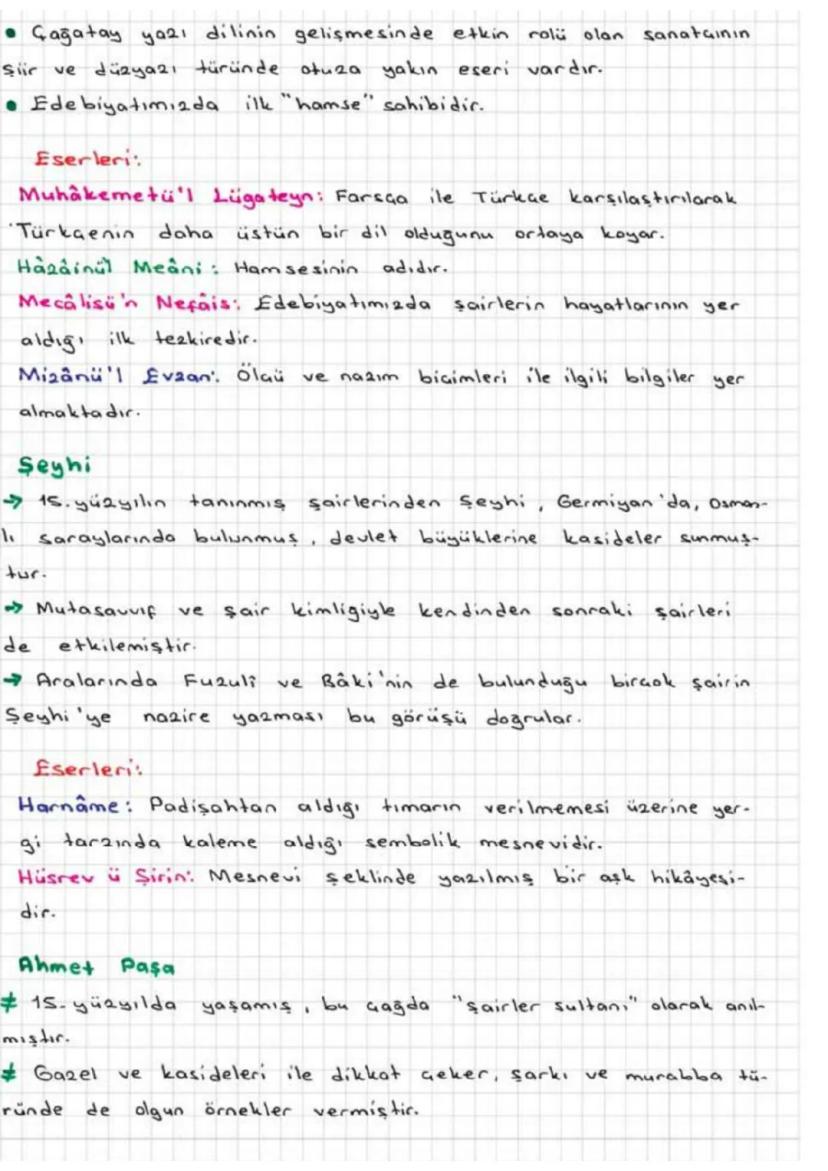 • Çağatay yazı dilinin gelişmesinde etkin rolü olan sanatçının
şiir ve düzyazı türünde otuza yakın eseri vardır.
• Edebiyatımızda ilk "hamse" sahibidir.
Eserleri:
Muhâkemetü'l Lügateyn: Farsça ile Türkçe karşılaştırılarak
Türkçenin daha üstün bir dil olduğunu ortaya koyar.
Hâzâinül Meâni: Hamsesinin adıdır.
Mecâlisü'n Nefâis: Edebiyatımızda şairlerin hayatlarının yer
aldığı ilk tezkiredir.
Mizânü'l Evzan: Ölçü ve nazım biçimleri ile ilgili bilgiler yer
almaktadır.
Şeyhi
→ 15. yüzyılın tanınmış şairlerinden Şeyhi, Germiyan'da, Osman-
lı saraylarında bulunmuş, devlet büyüklerine kasideler sunmuş-
tur.
→ Mutasavvıf ve şair kimliğiyle kendinden sonraki şairleri
de etkilemiştir.
→ Aralarında Fuzulî ve Bâki'nin de bulunduğu birçok şairin
Şeyhi'ye nazire yazması bu görüşü doğrular.
Eserleri:
Harnâme: Padişahtan aldığı tımarın verilmemesi üzerine yer-
gi tarzında kaleme aldığı sembolik mesnevidir.
Hüsrev ü Şirin: Mesnevi şeklinde yazılmış bir aşk hikâyesi-
dir.
Ahmet Paşa
≠ 15. yüzyılda yaşamış, bu çağda "şairler sultanı" olarak anıl-
mıştır.
≠ Gazel ve kasideleri ile dikkat çeker, şarkı ve murabba tü-
ründe de olgun örnekler vermiştir.